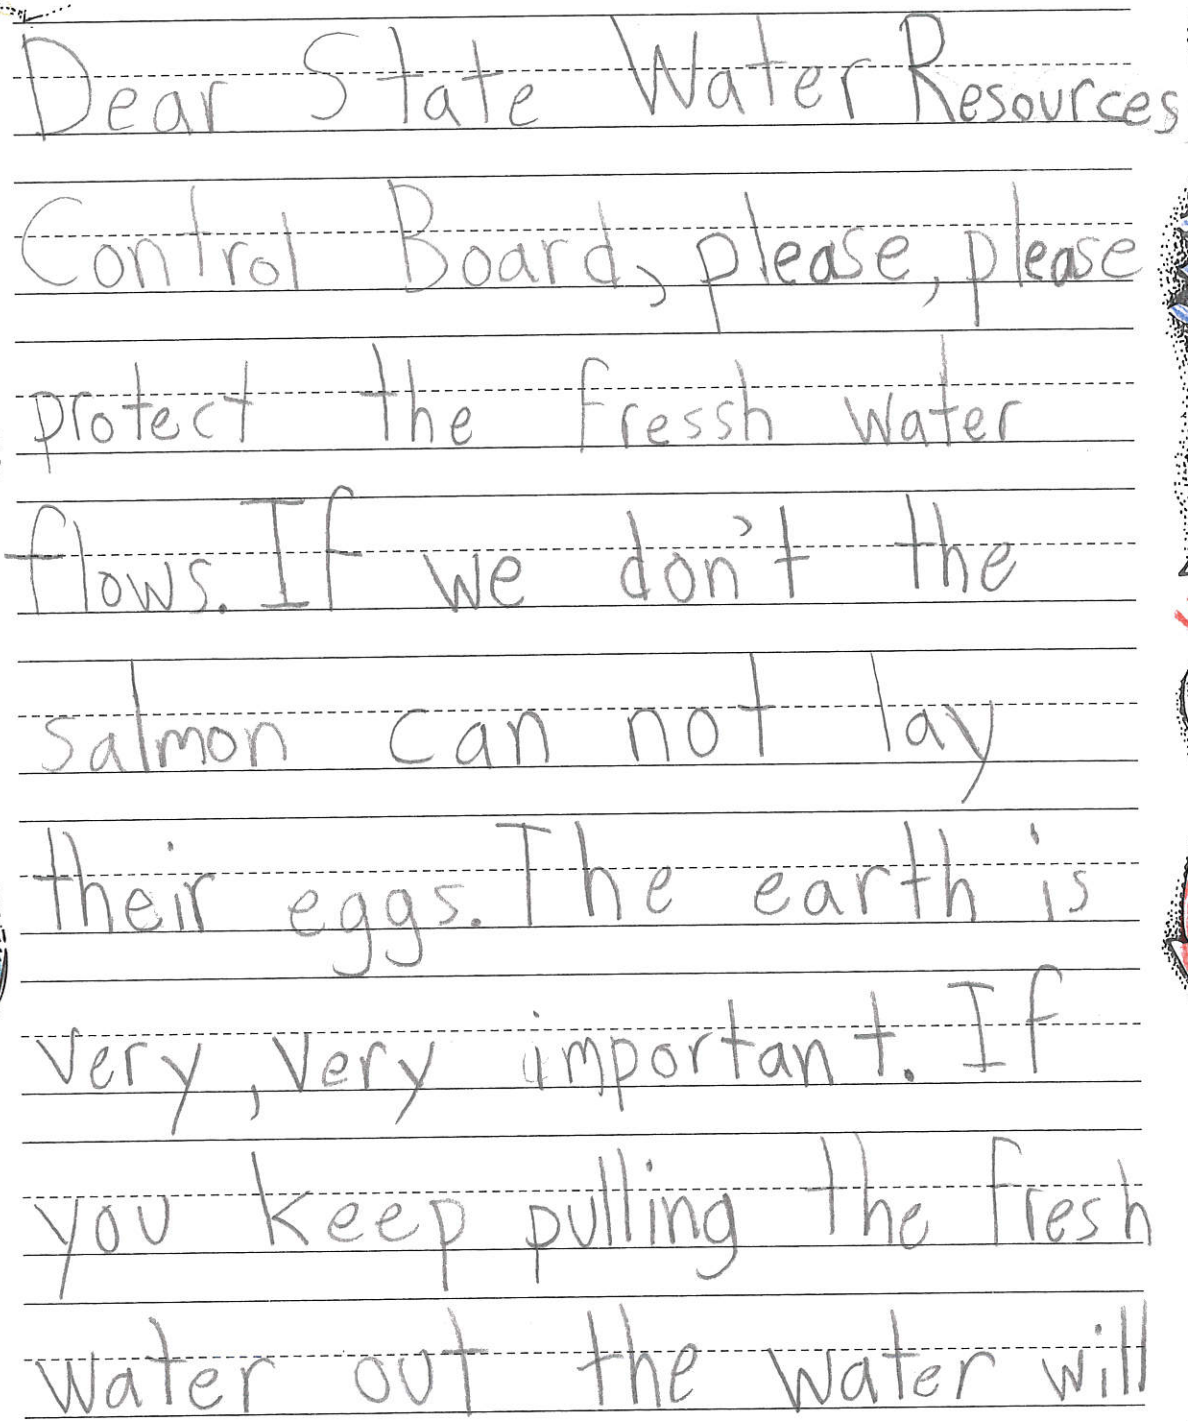 Dear State Water Resources
Control Board, please, please
protect the fressh water
flows. If we don't the
salmon can not lay
their eggs. The earth is
very, very important. If
you keep pulling the fresh
water out the water will